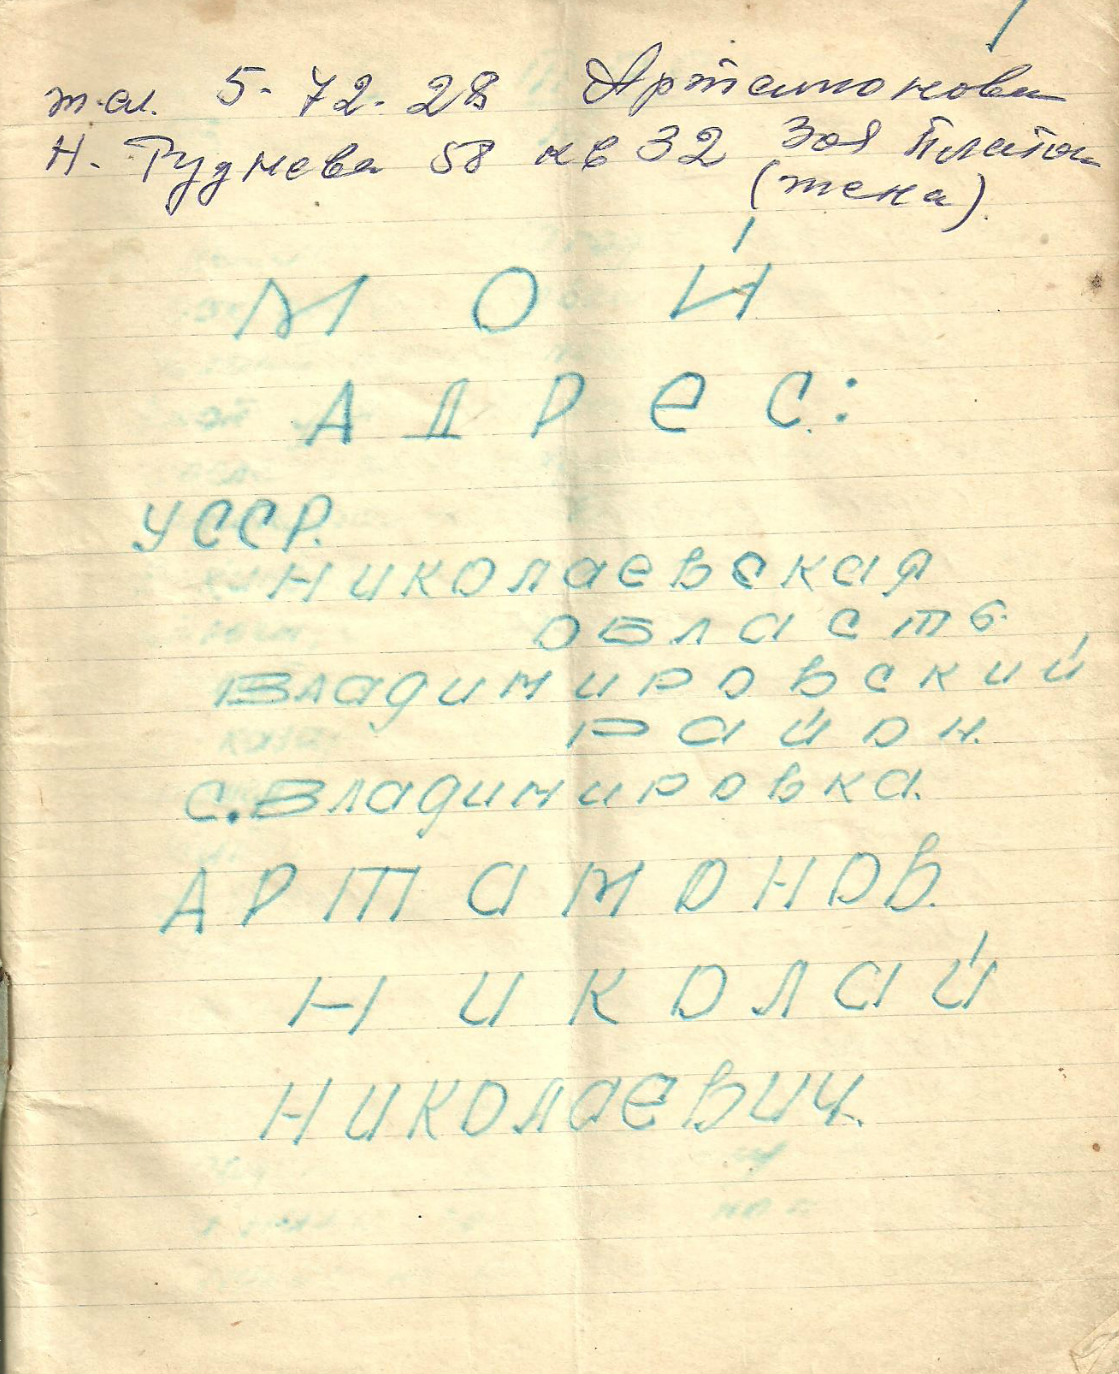 тел. 5-72-28 Артамонова
Н. Руднева 58 кв 32 Зоя Платон
(жена)
МОЙ
АДРеС:
УССР.
Николаевская
область.
Владимировский
район.
с. Владимировка.
АРТаМОНОВ.
Николай
Николаевич.